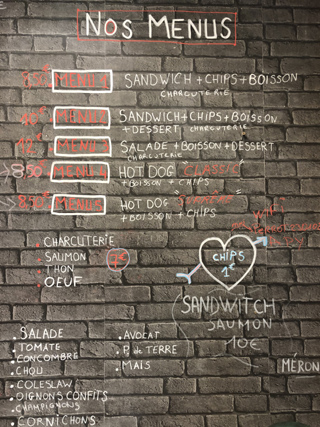 NOS MENUS
8,50€ MENU 1 SANDWICH + CHIPS + BOISSON
CHARCUTERIE
10€ MENU 2 SANDWICH + CHIPS + BOISSON
+ DESSERT CHARCUTERIE
MENU 3 SALADE + BOISSON + DESSERT
CHARCUTERIE
8,50€ MENU 4 HOT DOG "CLASSIC"
+ BOISSON + CHIPS
8,50€ MENU 5 HOT DOG
+ BOISSON + CHIPS
. CHARCUTERIE
. SAUMON
. THON
. OEUF
7€
WIFI
CHIPS
1€
SANDWITCH
SAUMON
10€
. SALADE
. TOMATE
. CONCOMBRE
. CHOU
. COLESLAW
. OIGNONS CONFITS
. CHAMPIGNONS
. CORNICHONS
. AVOCAT
. P. de TERRE
. MAIS
MÉRON